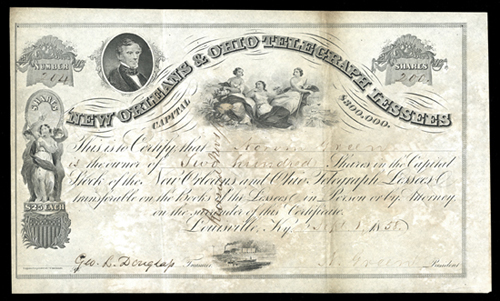 NUMBER
204
SHARES
200
NEW ORLEANS & OHIO TELEGRAPH LESSEES
CAPITAL
$300,000.
SHARES
$25 EACH
This is to Certify that
is the owner of Two Hundred Shares in the Capital
Stock of the New Orleans and Ohio Telegraph Lessees
transferable on the Books of the Lessees in Person or by Attorney
on the surrender of this Certificate.
Louisville, Ky. 185
Geo. L. Douglass